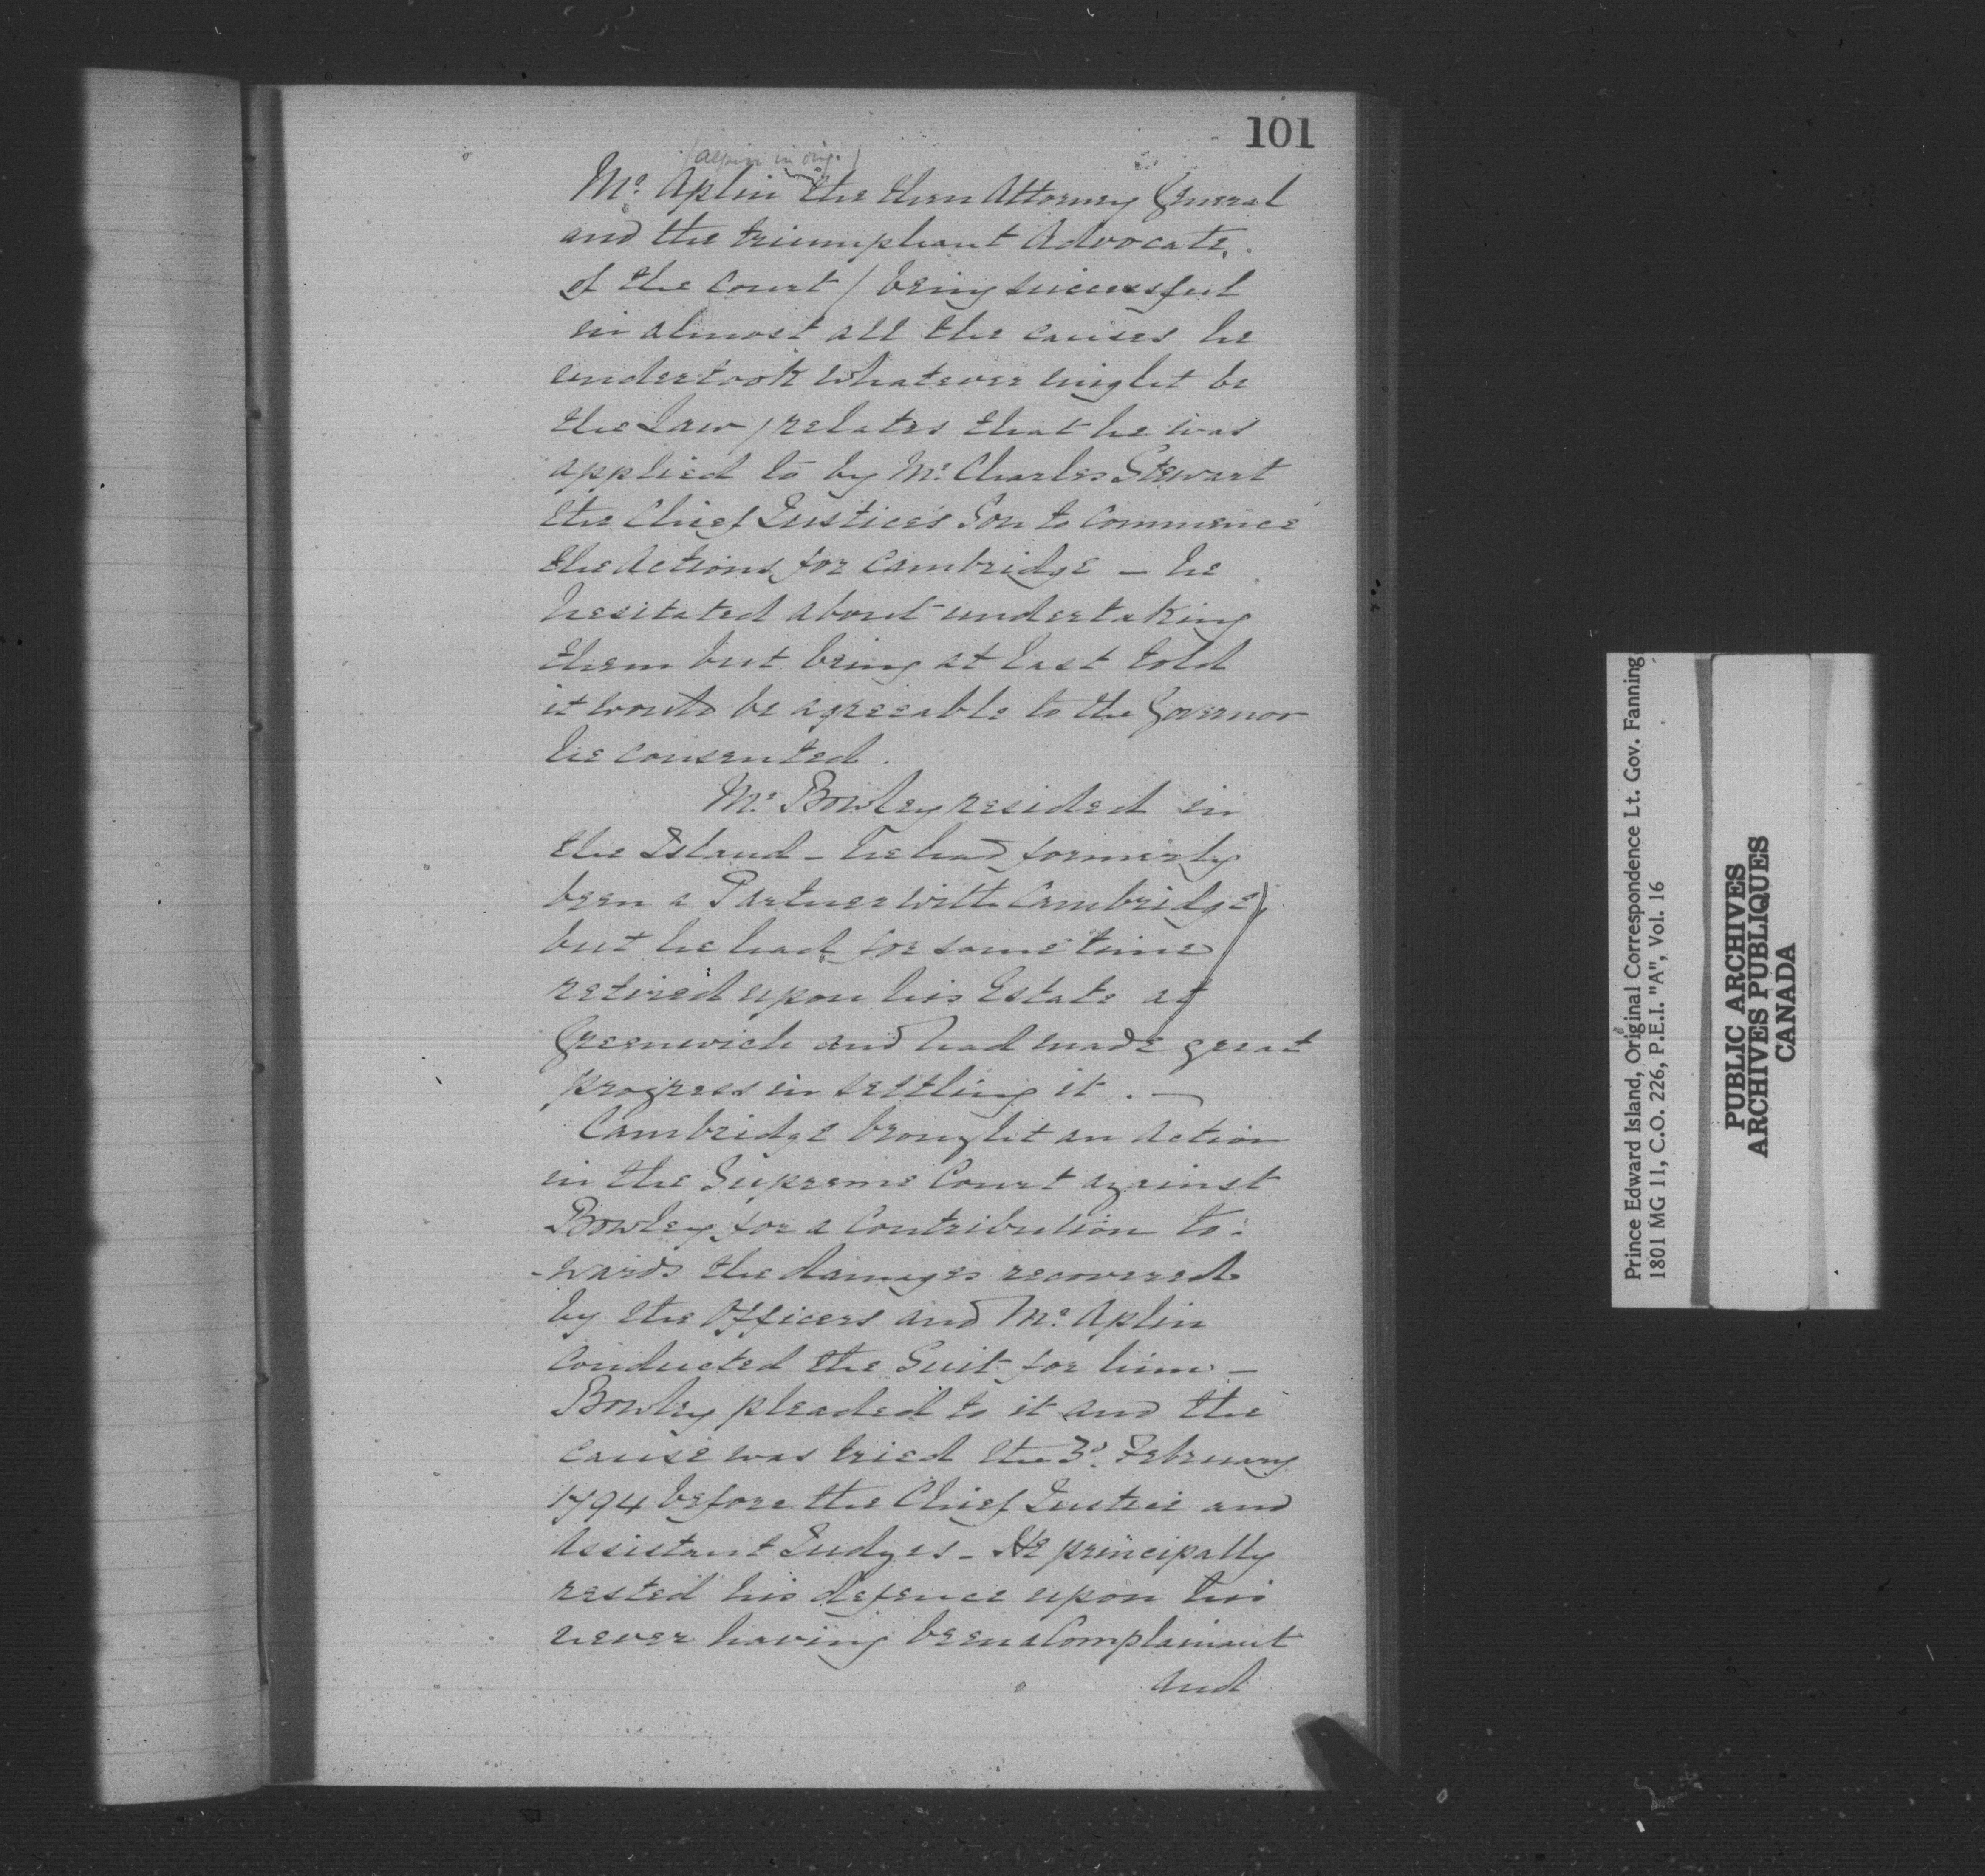 101
(Alpin in orig.)
Mr. Aplin the then Attorney General
and the triumphant Advocate
of the Court / being successful
in almost all the causes he
undertook whatever might be
the Law / relates that he was
applied to by Mr. Charles Stewart
the Chief Justice's Son to commence
the Actions for Cambridge - he
hesitated about undertaking
them but being at last told
it would be agreeable to the Governor
he consented.
Mr. Bowley resided in
the Island - he had formerly
been a Partner with Cambridge
but he had for some time
retired upon his Estate at
Greenwich and had made great
progress in settling it. -
Cambridge brought an Action
in the Supreme Court against
Bowley for a Contribution to-
-wards the damages recovered
by the Officers and Mr. Aplin
conducted the Suit for him -
Bowley pleaded to it and the
cause was tried the 3d. February
1794 before the Chief Justice and
Assistant Judges - He principally
rested his defence upon his
never having been a Complainant
and
Prince Edward Island, Original Correspondence Lt. Gov. Fanning
1801 MG 11, C.O. 226, P.E.I. "A", Vol. 16
PUBLIC ARCHIVES
ARCHIVES PUBLIQUES
CANADA